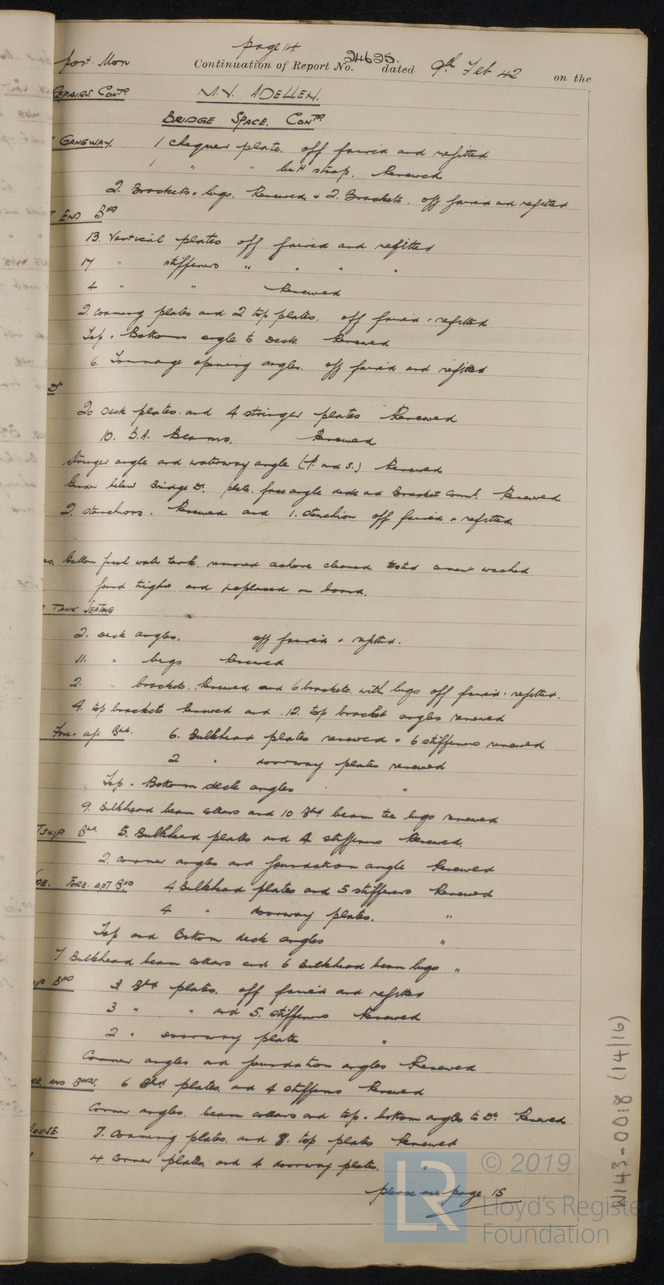 page 14
port Mon Continuation of Report No. 24625. dated 9th Feb 42 on the
REPAIRS CONTD M.V. ADELLEN.
BRIDGE SPACE. CONTD
GANGWAY. 1 Chequer plate. off faired and refitted
1 " " butt strap. Renewed
2. Brackets & lugs. Renewed & 2. Brackets. off faired and refitted
END BHD
13. Vertical plates off faired and refitted
17 " stiffeners " " " "
4 " " Renewed
2. Coaming plates and 2 top plates. off faired & refitted
Top & Bottom angle to Deck Renewed
6. Tonnage opening angles. off faired and refitted
DK
20 Deck plates and 4 stringer plates Renewed
10. B.A. Beams. Renewed
Stringer angle and waterway angle (P. and S.) Renewed
Girder below Bridge Dk. plate, face angle and Bracket Renewed
2. stanchions. Renewed and 1. stanchion off faired & refitted
Gallon fresh water tank. removed ashore cleaned tested cement washed
found tight and replaced on board.
TANK SEATING
2. Deck angles. off faired & refitted.
11. " lugs Renewed
2. " brackets. Renewed and 6 brackets with lugs off faired & refitted.
4. top brackets renewed and 12. top bracket angles renewed
Fore & aft Bhd. 6. Bulkhead plates renewed & 6 stiffeners renewed
2 " doorway plates renewed
Top & Bottom deck angles "
9. Bulkhead beam collars and 10 Bhd beam tee lugs renewed
TSHIP Bhd 5. Bulkhead plates and 4 stiffeners Renewed.
2. Corner angles and foundation angle Renewed
FORE. AFT BHD 4 Bulkhead plates and 5 stiffeners Renewed
4 " doorway plates. "
Top and Bottom deck angles "
7 Bulkhead beam collars and 6 Bulkhead beam lugs "
BHD 3 Bhd plates. off faired and refitted
3 " " and 5. stiffeners Renewed
2 " doorway plate "
Corner angles and foundation angles Renewed
6 Bhd plates and 4 stiffeners Renewed
Corner angles. beam collars and top & bottom angles to Dk. Renewed
HOUSE 7. Coaming plates and 8. top plates Renewed
4 Corner plates and 4 doorway plates.
please see page 15
W143-0018 (14/16)
LR © 2019
Lloyd's Register
Foundation